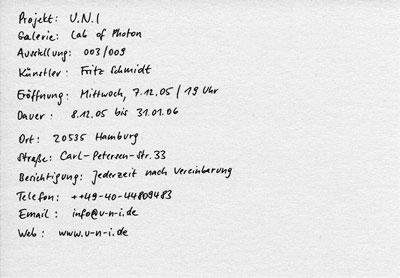 Projekt: U.N.I
Galerie: Lab of Photon
Ausstellung: 003/009
Künstler: Fritz Schmidt
Eröffnung: Mittwoch, 7.12.05 / 19 Uhr
Dauer: 8.12.05 bis 31.01.06
Ort: 20535 Hamburg
Straße: Carl-Petersen-Str. 33
Besichtigung: Jederzeit nach Vereinbarung
Telefon: ++49-40-44809483
Email: info@u-n-i.de
Web: www.u-n-i.de